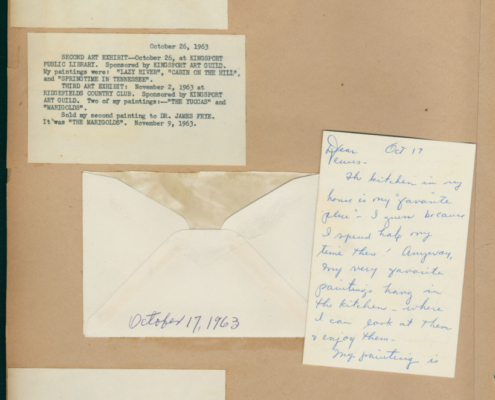 October 26, 1963
SECOND ART EXHIBIT--October 26, at KINGSPORT
PUBLIC LIBRARY. Sponsored by KINGSPORT ART GUILD.
My paintings were: "LAZY RIVER", "CABIN ON THE HILL",
and "SPRINGTIME IN TENNESSEE".
THIRD ART EXHIBIT: November 2, 1963 at
RIDGEFIELDS COUNTRY CLUB. Sponsored by KINGSPORT
ART GUILD. Two of my paintings:--"THE YUCCAS" and
"MARIGOLDS".
Sold my second painting to DR. JAMES FRYE.
It was "THE MARIGOLDS". November 9, 1963.
October 17, 1963
Dear Oct 17
The kitchen in my
house is my "favorite
place" - I guess because
I spend half my
time there! Anyway,
my very favorite
paintings hang in
the kitchen - where
I can look at them
& enjoy them -
My painting is